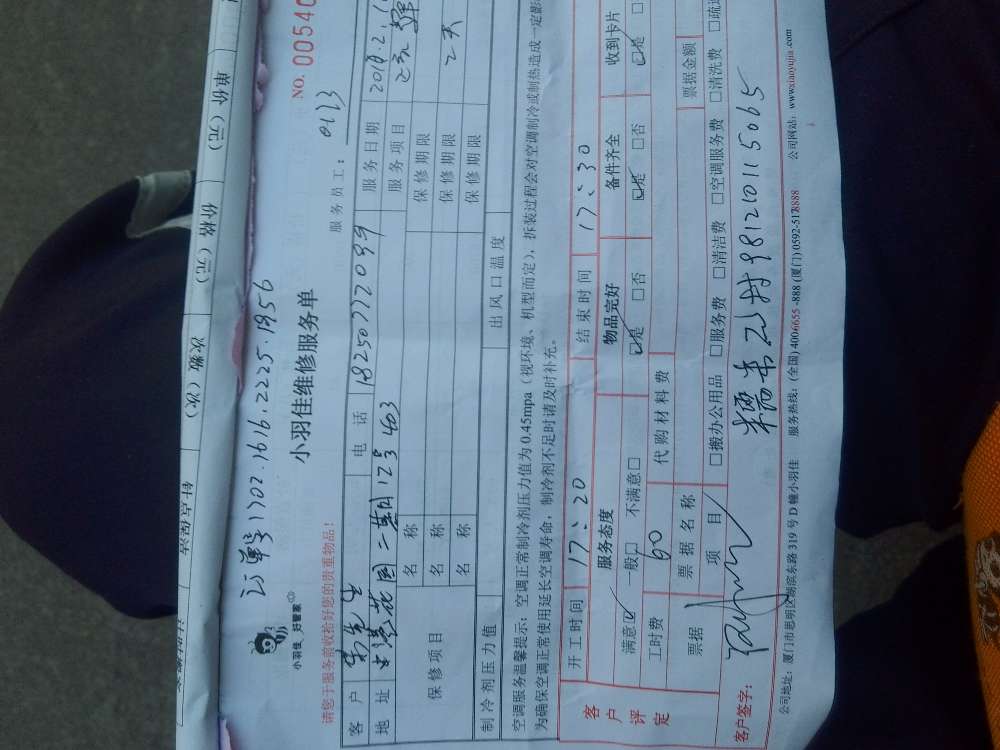 单价(元) 价格(元) 次数(次)
订单号1702.1616.2225.1956
小羽佳 好管家
小羽佳维修服务单
NO. 00540
请您于服务前收拾好您的贵重物品!
服务员工: 0113
客户 先生 电话 18250772099 服务日期 2018.2.
地址 花园二期12号403 服务项目
保修项目
名称 保修期限
名称 保修期限 2天
名称 保修期限
制冷剂压力值 出风口温度
空调服务温馨提示:空调正常制冷剂压力值为0.45mpa(视环境、机型而定),拆装过程会对空调制冷或制热造成一定影
为确保空调正常使用延长空调寿命,制冷剂不足时请及时补充。
客户评定
开工时间 17:20 结束时间 17:30
服务态度 物品完好 备件齐全 收到卡片
满意☑ 一般□ 不满意□ ☑是 □否 ☑是 □否 ☑是
工时费 60 代购材料费
票据 票据名称 票据金额
项目 □搬办公用品 □服务费 □清洁费 □空调服务费 □清洗费 □疏通
客户签字: 糯米 981210115065
公司地址:厦门市思明区湖滨东路319号D幢小羽佳 服务热线:(全国)4006655-888 (厦门)0592-5178888 公司网站:www.xiaoyujia.com